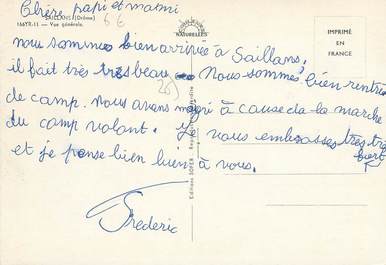 Chère papi et mami
SAILLANS (Drôme)
166YR-11 — Vue générale.
66
NATURELLES
IMPRIMÉ
EN
FRANCE
nous sommes bien arrivée à Saillans.
il fait très très beau. Nous sommes bien rentré
de camp. Nous avons maigri à cause da la marche
du camp volant. Je vous embrasses très très
fort
et je pense bien bien à vous.
Frederic
269
Editions SOFER